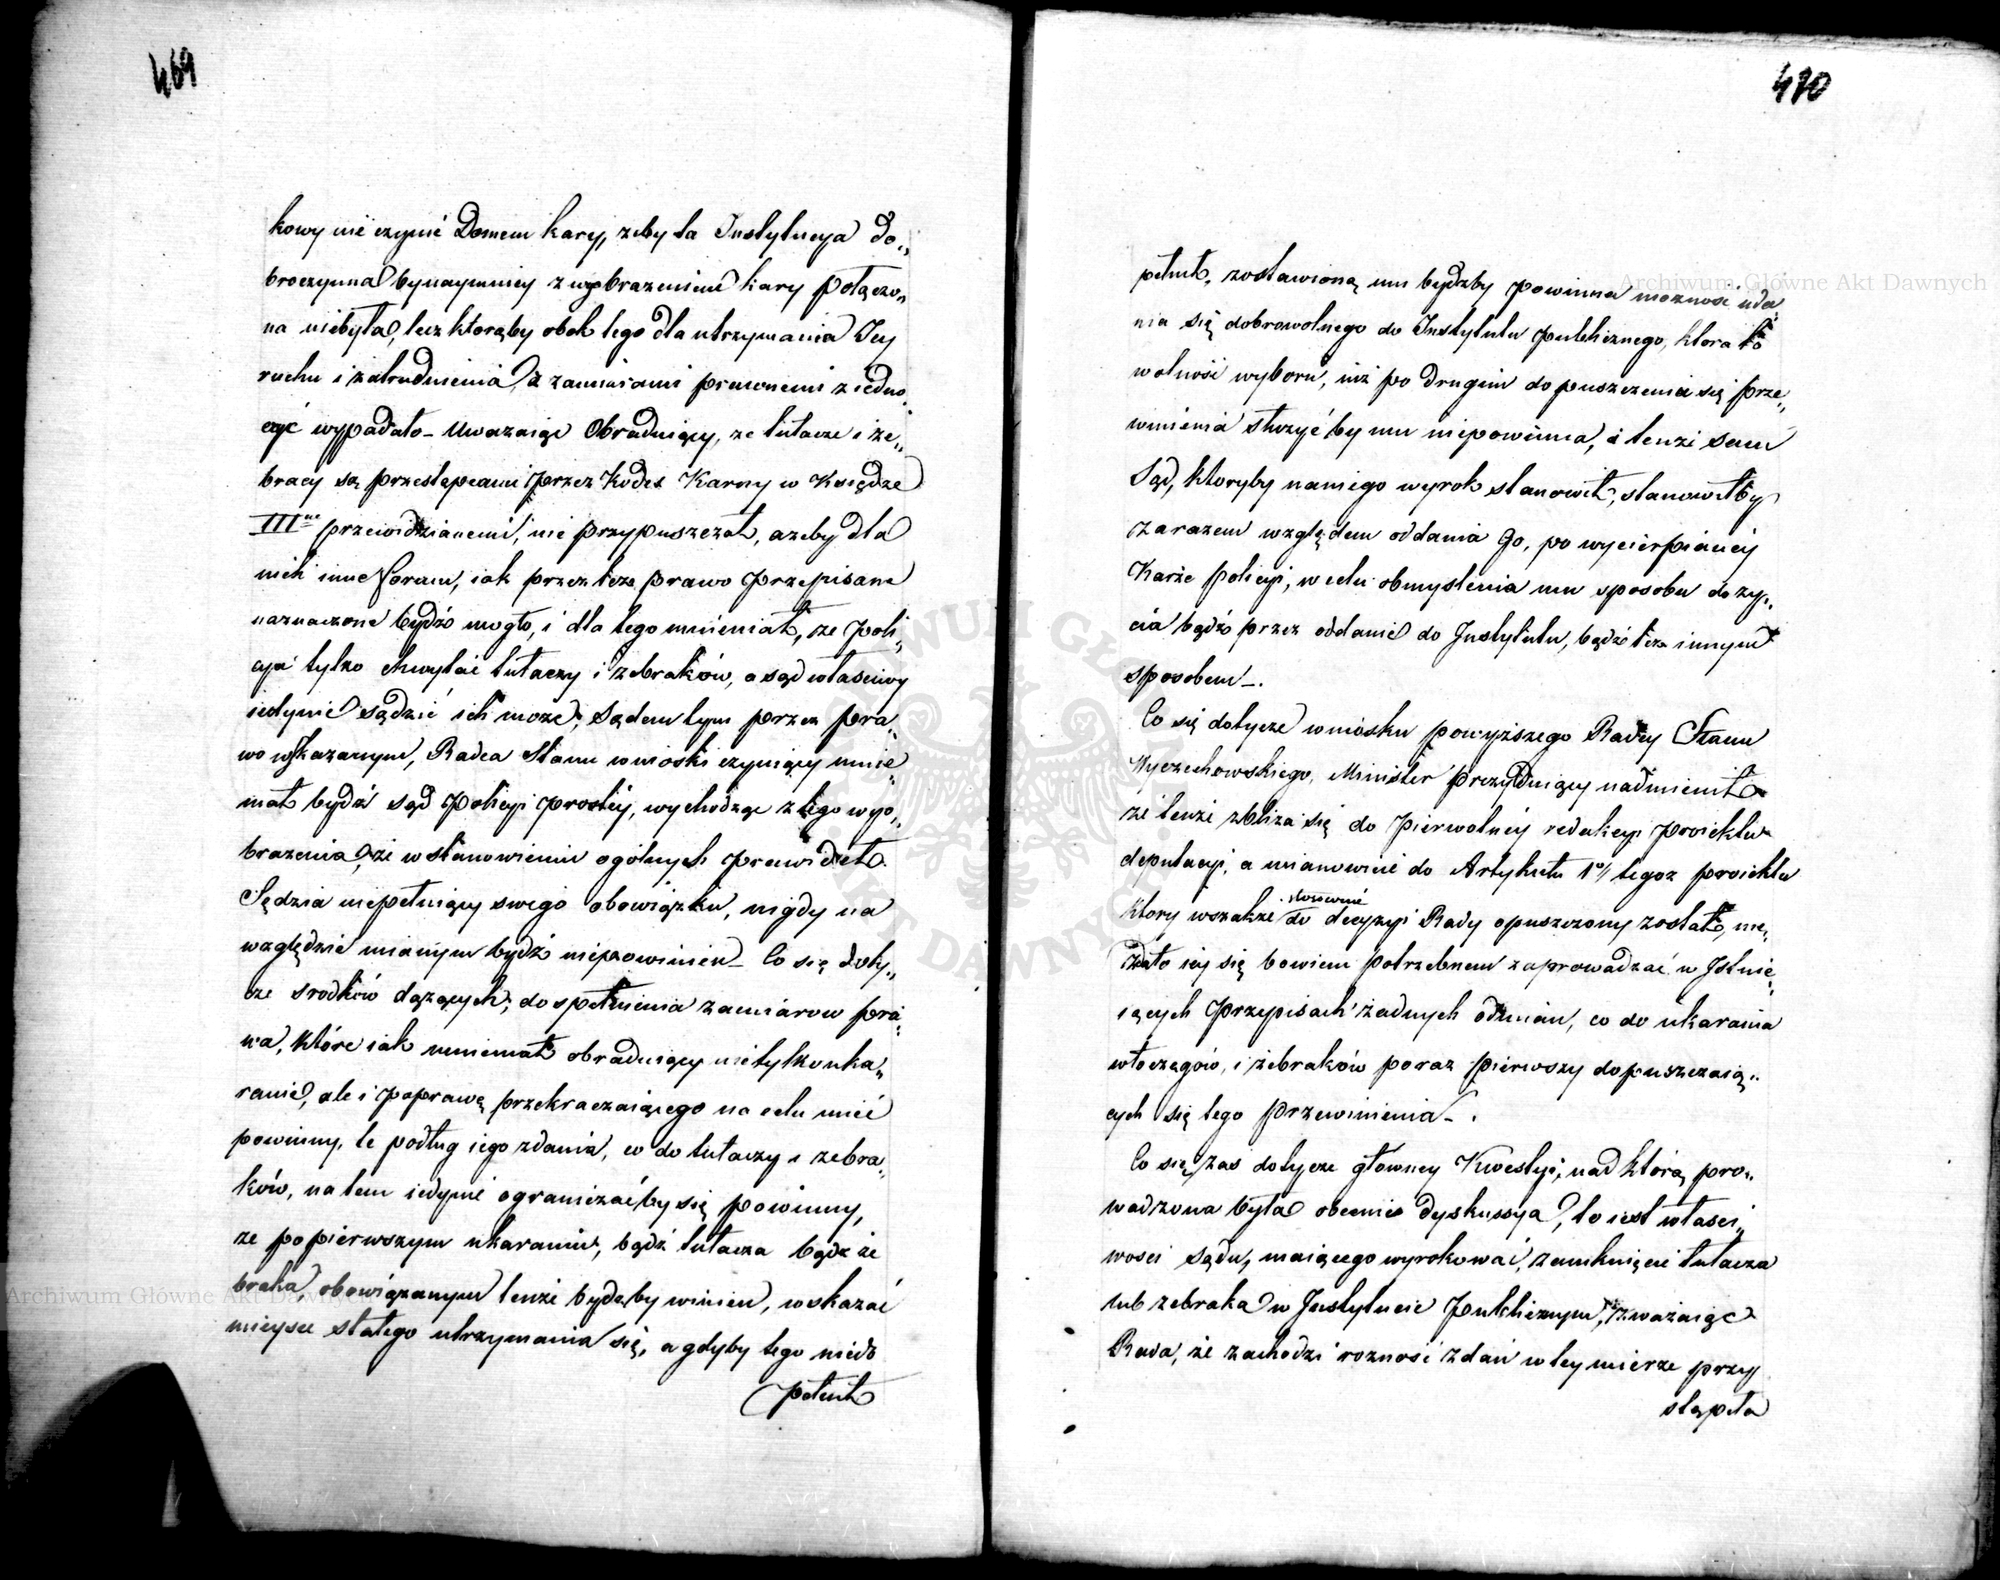 469
kowy nie czynić Domem kary, żeby ta Instytucya do„
broczynna bynaymniey z wyobrażeniem kary połączo„
na niebyła, lecz którąby obok tego dla utrzymania Jey
ruchu i zatrudnienia, z zamiarami prawnemi ziedno„
czyć wypadało – Uważaiąc Obraduiący, że tułacze i że„
bracy są przestępcami przez Kodex Karny w Księdze
IIIciey przewidzianemi, nie przypuszczał, ażeby dla
nich inne forum, iak przez toż prawo przepisane
naznaczone bydź mogło, i dla tego mniemał, że poli„
cya tylko chwytać tułaczy i żebraków, a sąd właściwy
iedynie sądzić ich może; Sądem tym przez pra„
wo wskazanym, Radca Stanu wnioski czyniący mnie„
mał bydź sąd Policyi prostéy, wychodząc z tego wyo„
brażenia, że w stanowieniu ogólnych prawideł
Sędzia niepełniący swego obowiązku, nigdy na
względzie mianym bydź niepowinien – Co się doty„
cze srodków dążących, do spełnienia zamiarow pra„
wa, które iak mniemał obraduiący nietylko uka„
ranie, ale i poprawę przekraczaiącego na celu mieć
powinny, te podług iego zdania, co do tułaczy i żebra„
ków, na tem iedynie ograniczaćby się powinny,
że po pierwszym ukaraniu, bądź tułacza bądź że
braka, obowiązanym tenże bydźby winien, wskazać
mieysce stałego utrzymania się, a gdyby tego niedo
pełnił
470
pełnił, zostawioną mu bydźby powinna możność uda„
nia się dobrowolnego do Instytutu publicznego, która to
wolność wyboru, iuż po drugim dopuszczeniu się prze„
winienia służyćby mu niepowinna, i tenże sam
Sąd, któryby na niego wyrok stanowił, stanowiłby
zarazem względem oddania Go, po wycierpianéy
Karze policyi, w celu obmyślenia mu sposobu do ży„
cia bądź przez oddanie do Instytutu, bądź też innym
sposobem –.
Co się dotycze wniosku powyższego Radcy Stanu
Wyczechowskiego, Minister prezyduiący nadmienił
że tenże zbliża się do pierwotnéy redakcyi proiektu
deputacyi, a mianowicie do Artykułu 1º tegoż proiektu
który wszakże stosownie
do decyzyi Rady opuszczony został, nie„
zdało iey się bowiem potrzebnem zaprowadzać w Istnie„
iących Przepisach żadnych odmian, co do ukarania
włóczęgów, i żebraków poraz pierwszy dopuszczaią„
cych się tego przewinienia –.
Co się zaś dotycze główney Kwestyi, nad którą pro„
wadzona była obecnie dyskussya, to iest właści„
wosci sądu, maiącego wyrokować, zamknięcie tułacza
lub żebraka w Instytucie Publicznym, zważaiąc
Rada, że zachodzi rożność zdań w tey mierze przy
stąpiła
Archiwum Główne Akt Dawnych
Archiwum Główne Akt Dawnych
ARCHIWUM GŁÓWNE AKT DAWNYCH